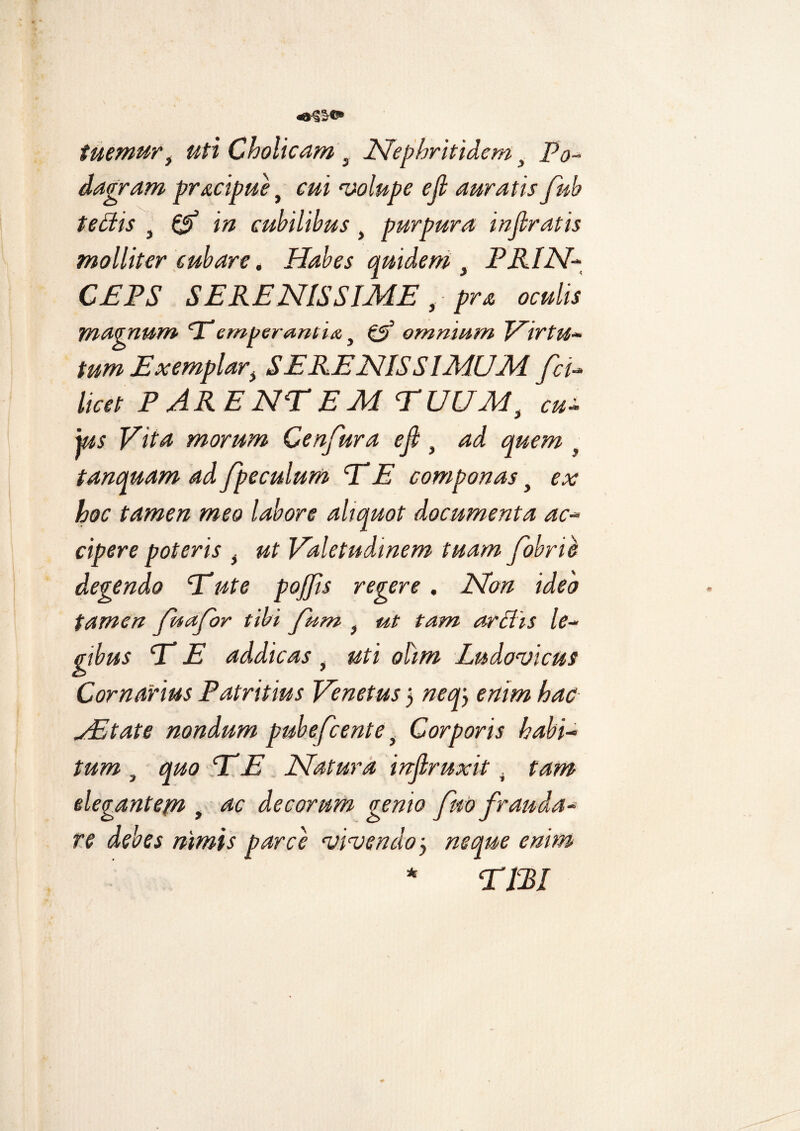 tuemur, uti Cholicam, Nephritidem, Po-
dagram præcipuè, cui volupe eſt auratis ſub
tectis, & in cubilibus, purpura inſtratis
molliter cubare. Habes quidem, PRIN-
CEPS SERENISSIME, præ oculis
magnum Temperantiæ, & omnium Virtu-
tum Exemplar, SERENISSIMUM ſci-
licet PARENTEM TUUM, cu-
jus Vita morum Cenſura eſt, ad quem,
tanquam ad ſpeculum TE componas, ex
hoc tamen meo labore aliquot documenta ac-
cipere poteris, ut Valetudinem tuam ſobriè
degendo Tute poſſis regere. Non ideò
tamen ſuaſor tibi ſum, ut tam arctis le-
gibus TE addicas, uti olim Ludovicus
Cornarius Patritius Venetus; neq; enim hac
Ætate nondum pubeſcente, Corporis habi-
tum, quo TE Natura inſtruxit, tam
elegantem, ac decorum genio ſuo frauda-
re debes nimis parcè vivendo; neque enim
* TIBI